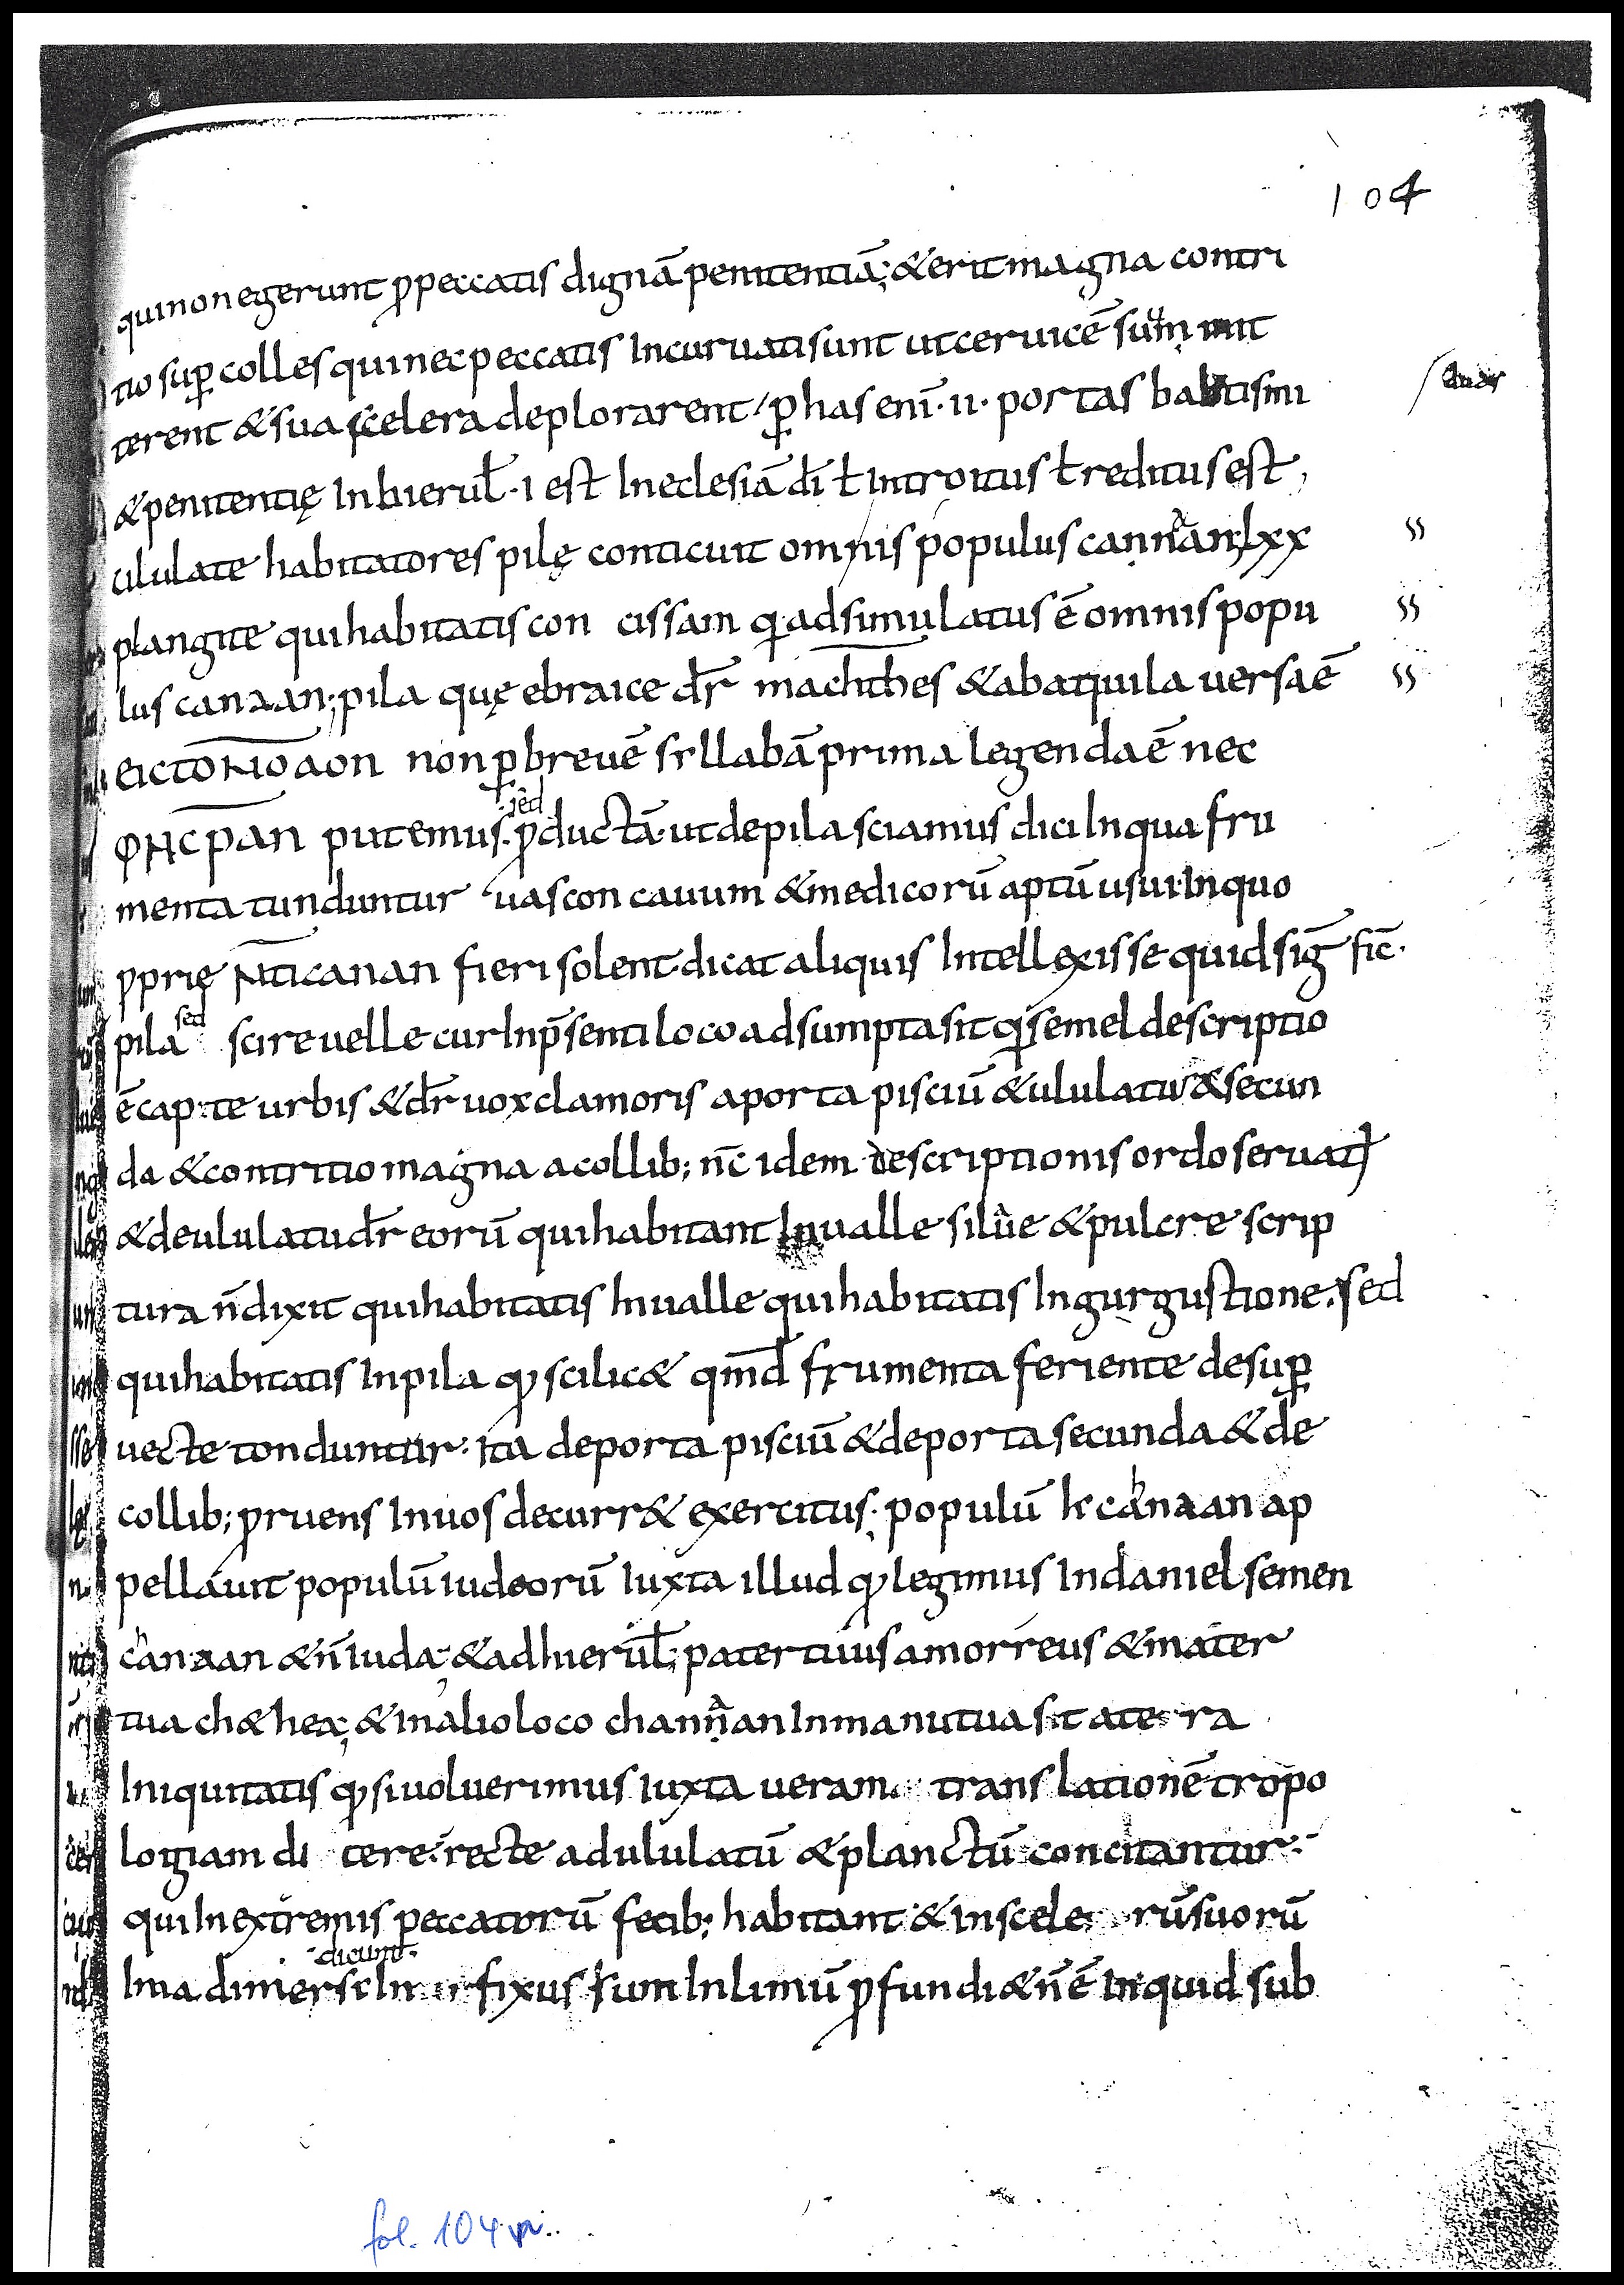 104
qui non egerunt ꝓ peccatis dignā penitentiā; & erit magna contri
tio suꝑ colles qui nec peccatis incuruati sunt ut ceruicē suam mit
terent & sua scelera deplorarent ꝑ has enī · ii · portas babtismi
& penitentię in hierul̄ · i est in eclesiā dī ł introitus ł reditus est,
ululate habitatores pilę conticuit omnis populus cannaan; lxx
plangite qui habitatis con cissam q adsimulatus ē omnis popu
lus canaan; pila quę ebraice dr̄ machthes & ab aquila uersa ē
ΕΙC ΤΟΝ ΟΛΟΝ non ꝑ breuē sillabā prima legenda ē nec
putemus · sed ꝓductā · ut de pila sciamus dici in qua fru
menta tunduntur uas con cauum & medicorū aptū usui · in quo
ꝓprię fieri solent · dicat aliquis intellexisse quid sig fic̄ ·
pila sed scire uelle cur in p̄senti loco adsumpta sit q semel descriptio
ē cap te urbis & dr̄ uox clamoris a porta pisciū & ululatus & secun
da & contritio magna a collib; nc̄ idem descriptionis ordo seruat
& de ululatu dr̄ eorū qui habitant in ualle silue & pulcre scrip
tura n̄ dixit qui habitatis in ualle qui habitatis in gurgustione · sed
qui habitatis in pila scilic& qmd̄ frumenta feriente desuꝑ
uecte tonduntur · ita de porta pisciū & de porta secunda & de
collib; ꝓruens in uos decurr& exercitus · populū canaan ap
pellauit populū iudeorū iuxta illud legimus in daniel semen
chanaan & n̄ iuda; & ad hierul̄; pater tuus amorreus & mater
tua ch&hea; & in alio loco channaan in manu tua sit ate ra
iniquitatis si uoluerimus iuxta ueram translationē tropo
logiam di cere · recte ad ululatū & planctū concitantur ·
qui in extremis peccatorū fecib; habitant & in scele rū suorū
ima dimersi dicunt · in fixus sum in limū ꝓfundi & n̄ ē in quid sub
fol. 104